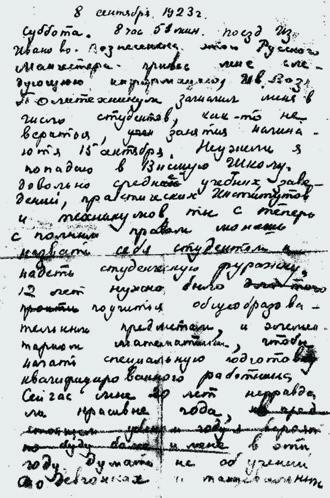 8 сентября, 1923г.
Суббота. 8 час 50 мин. поезд из
Иваново-Вознесенска, этого Русского
Манчестера, привез мне сле-
дующую информацию, Ив. Возн.
Политехникум записал меня в
число студентов, как-то не
верится, занятия начина-
ются 15 сентября. Неужели я
попадаю в Высшую Школу.
Довольно средней учебных заве-
дений, практических институтов
и техникумов, теперь
с полным правом можешь
назвать себя студентом и
надеть студенческую фуражку.
12 лет нужно было
поучиться общеобразова-
тельным предметам, и элемен-
тарной математике, чтобы
начать специальную подготовку
квалифицированного работника.
Сейчас мне 20 лет неправда
ли красивые года,
в эти
году думать не об учении
а о девчонках и